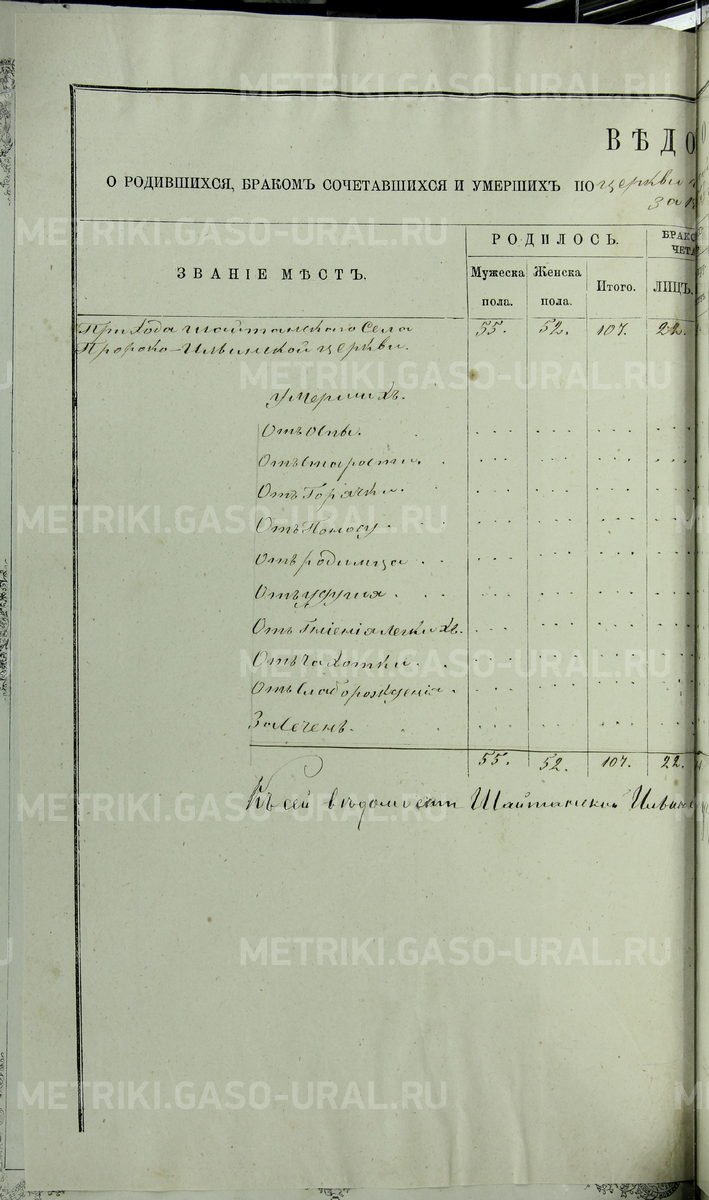 ВѢДО
О РОДИВШИХСЯ, БРАКОМЪ СОЧЕТАВШИХСЯ И УМЕРШИХЪ ПО церкви
за
ЗВАНІЕ МѢСТЪ.
РОДИЛОСЬ.
БРАКО
ЧЕТА
Мужеска пола.
Женска пола.
Итого.
ЛИЦЪ.
Прихода Шайтанскаго Села 55. 52. 107. 22.
Пророко-Ильинской церкви.
умершихъ.
Отъ Оспы.
Отъ Старости.
Отъ Горячки.
Отъ Поносу.
Отъ родимца
Отъ удушья
Отъ Гніенія Легкихъ.
Отъ Чахотки.
Отъ Слаборожденія.
Залечень.
55. 52. 107. 22.
Къ сей ведомости Шайтанской Ильинс
METRIKI.GASO-URAL.RU